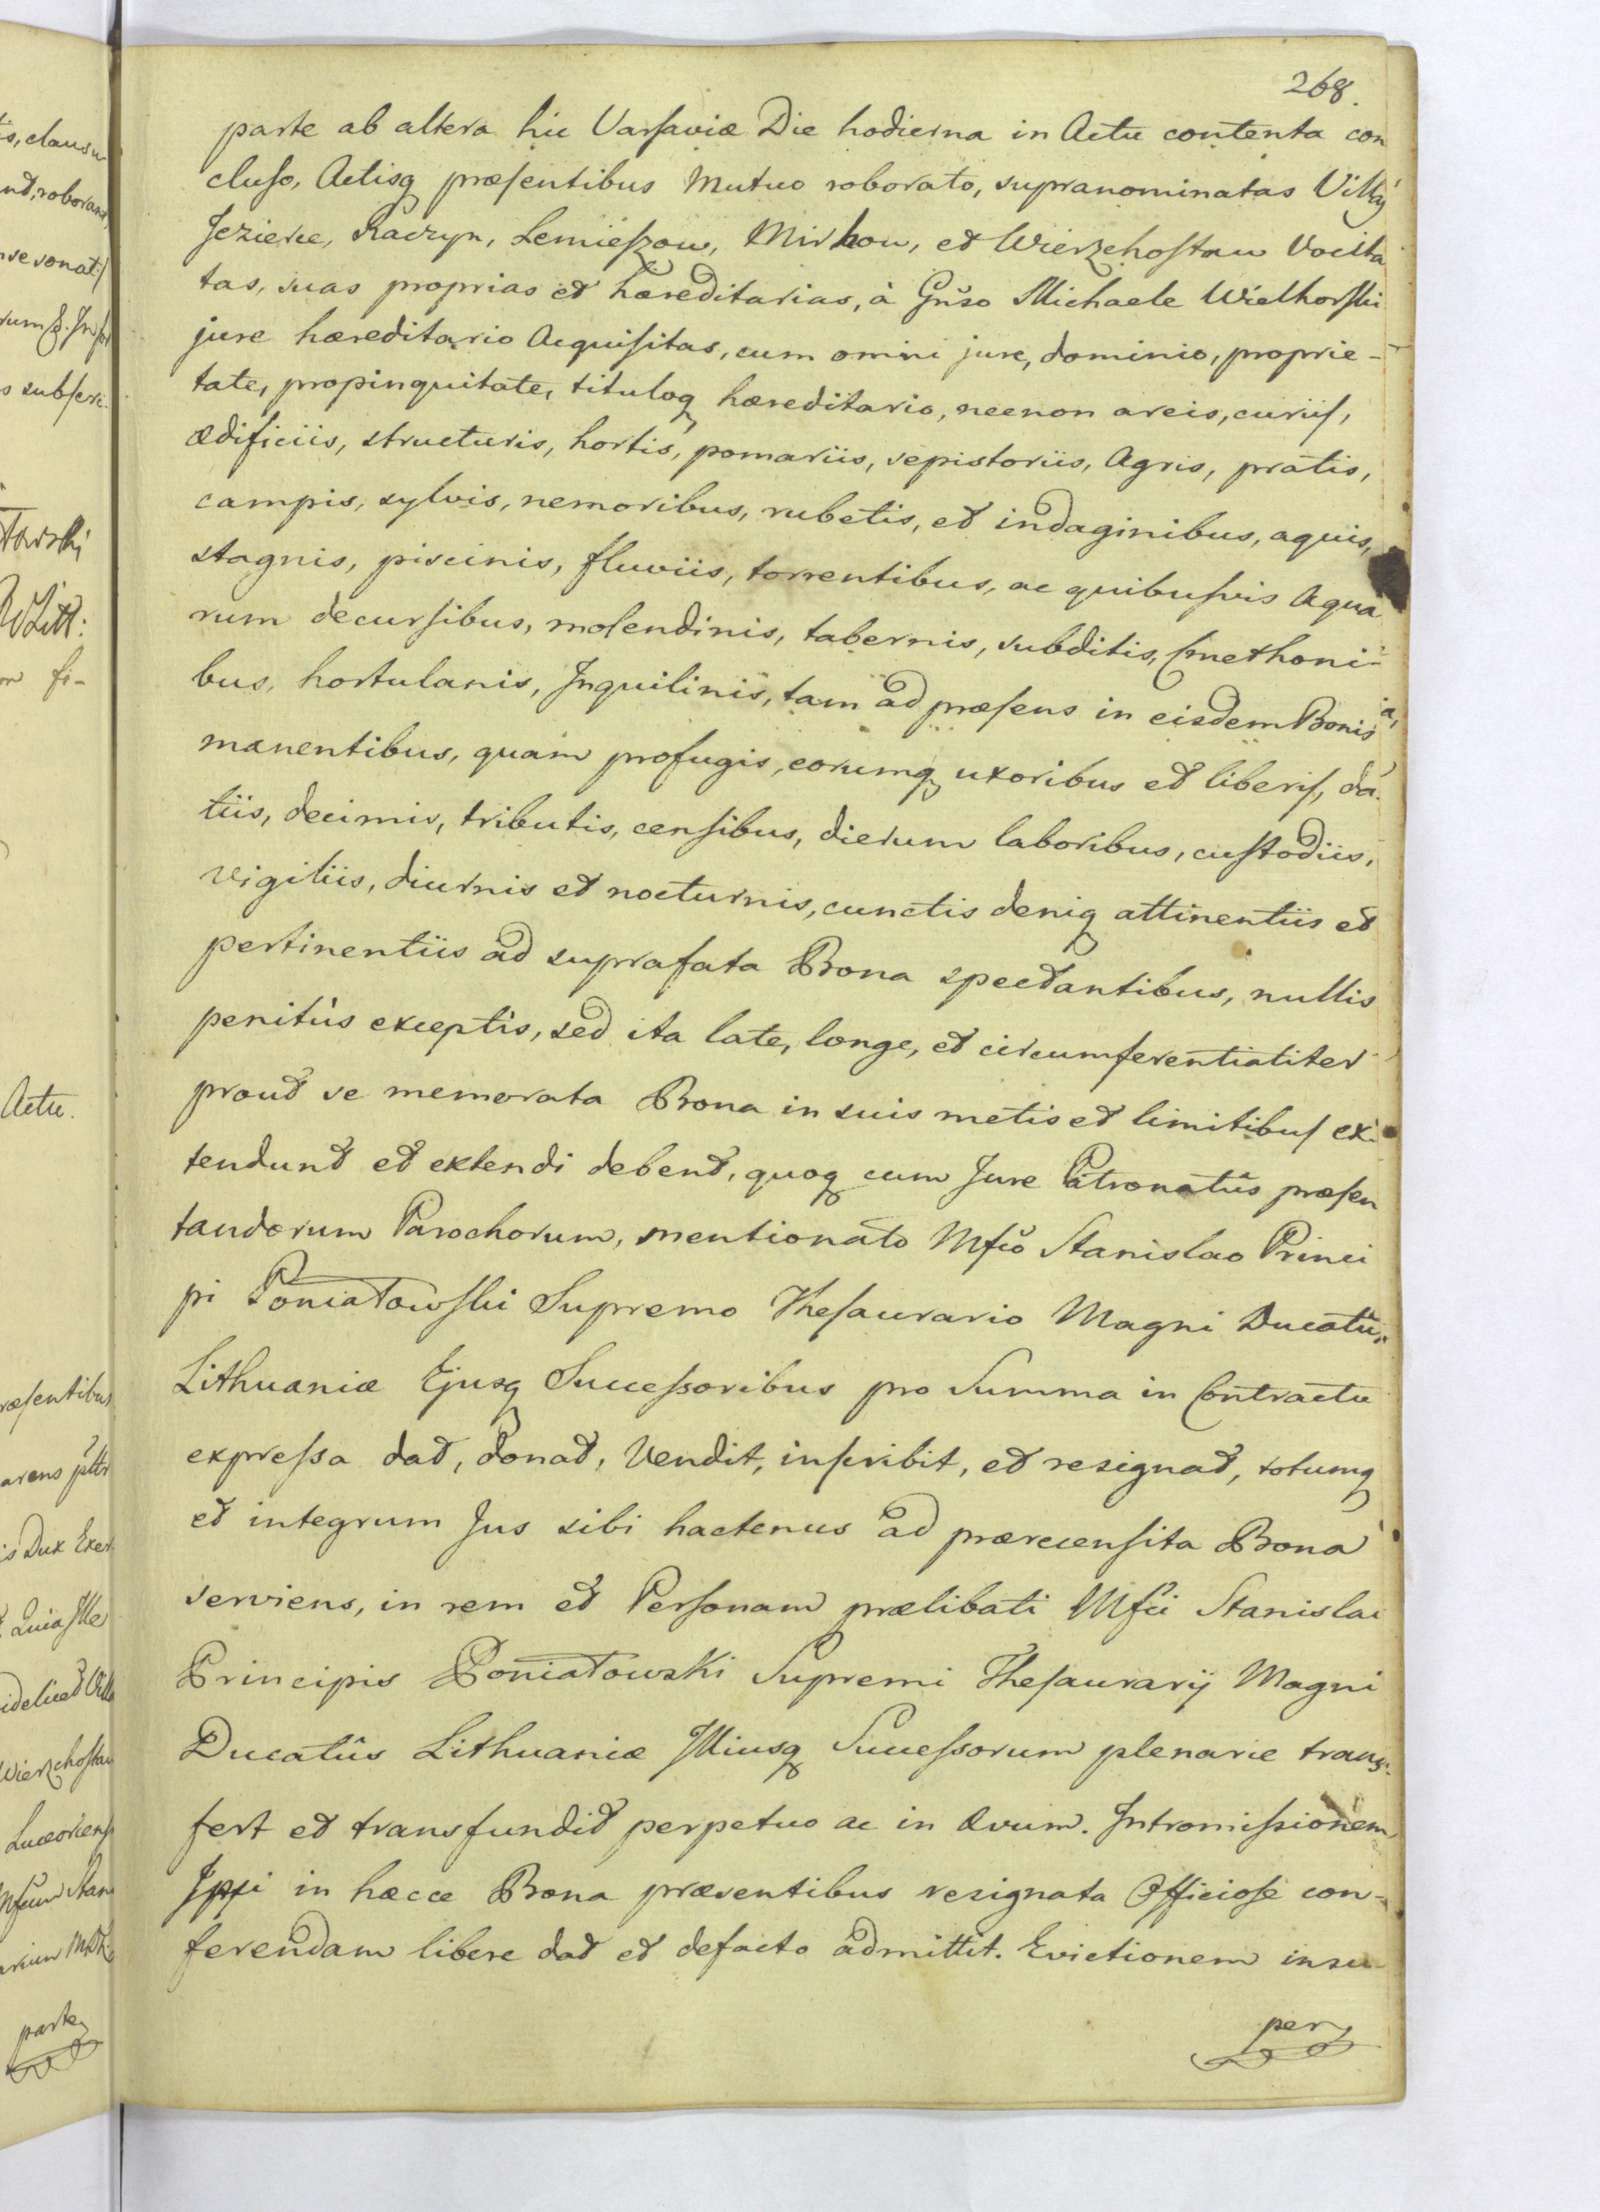 268.
parte ab altera hic Varsaviæ Die hodierna in Actu contenta con
cluso, Actisq præsentibus Mutuo roborato, supranominatas Villas
Jezierce, Raczyn, Lemieszow, Mirkow, et Wierzchostaw Vocita
tas, suas proprias et hæreditarias, à Gñso Michaele Wielhorski
jure hæreditario Acquisitas, cum omni jure, dominio, proprie-
tate, propinquitate, tituloq hæreditario, necnon areis, curiis,
ædificiis, structuris, hortis, pomariis, sepistoriis, Agris, pratis,
campis, sylvis, nemoribus, rubetis, et indaginibus, aquis,
stagnis, piscinis, fluviis, torrentibus, ac quibusvis Aqua
rum decursibus, molendinis, tabernis, subditis, Cmethoni-
bus, hortulanis, Inquilinis, tam ad præsens in eisdem Bonis
manentibus, quam profugis, eorumq uxoribus et liberis, da-
tiis, decimis, tributis, censibus, dierum laboribus, custodiis,
vigiliis, diurnis et nocturnis, cunctis deniq attinentiis et
pertinentiis ad suprafata Bona spectantibus, nullis
penitùs exceptis, sed ita late, longe, et circumferentialiter
prout se memorata Bona in suis metis et limitibus ex-
tendunt et extendi debent, quoq cum Jure Patronatûs præsen
tandorum Parochorum, mentionato Mfco Stanislao Princi
pi Poniatowski Supremo Thesaurario Magni Ducatûs
Lithuaniæ Ejusq Successoribus pro Summa in Contractu
expressa dat, donat, Vendit, inscribit, et resignat, totumq
et integrum Jus sibi hactenus ad prærecensita Bona
serviens, in rem et Personam prælibati Mfci Stanislai
Principis Poniatowski Supremi Thesaurarij Magni
Ducatûs Lithuaniæ Illiusq Successorum plenarie trans-
fert et transfundit perpetuo ac in Ævum. Intromissionem
Ipsi in hæcce Bona præsentibus resignata Officiose con-
ferendam libere dat et defacto admittit. Evictionem insu-
per
Actu.
parte